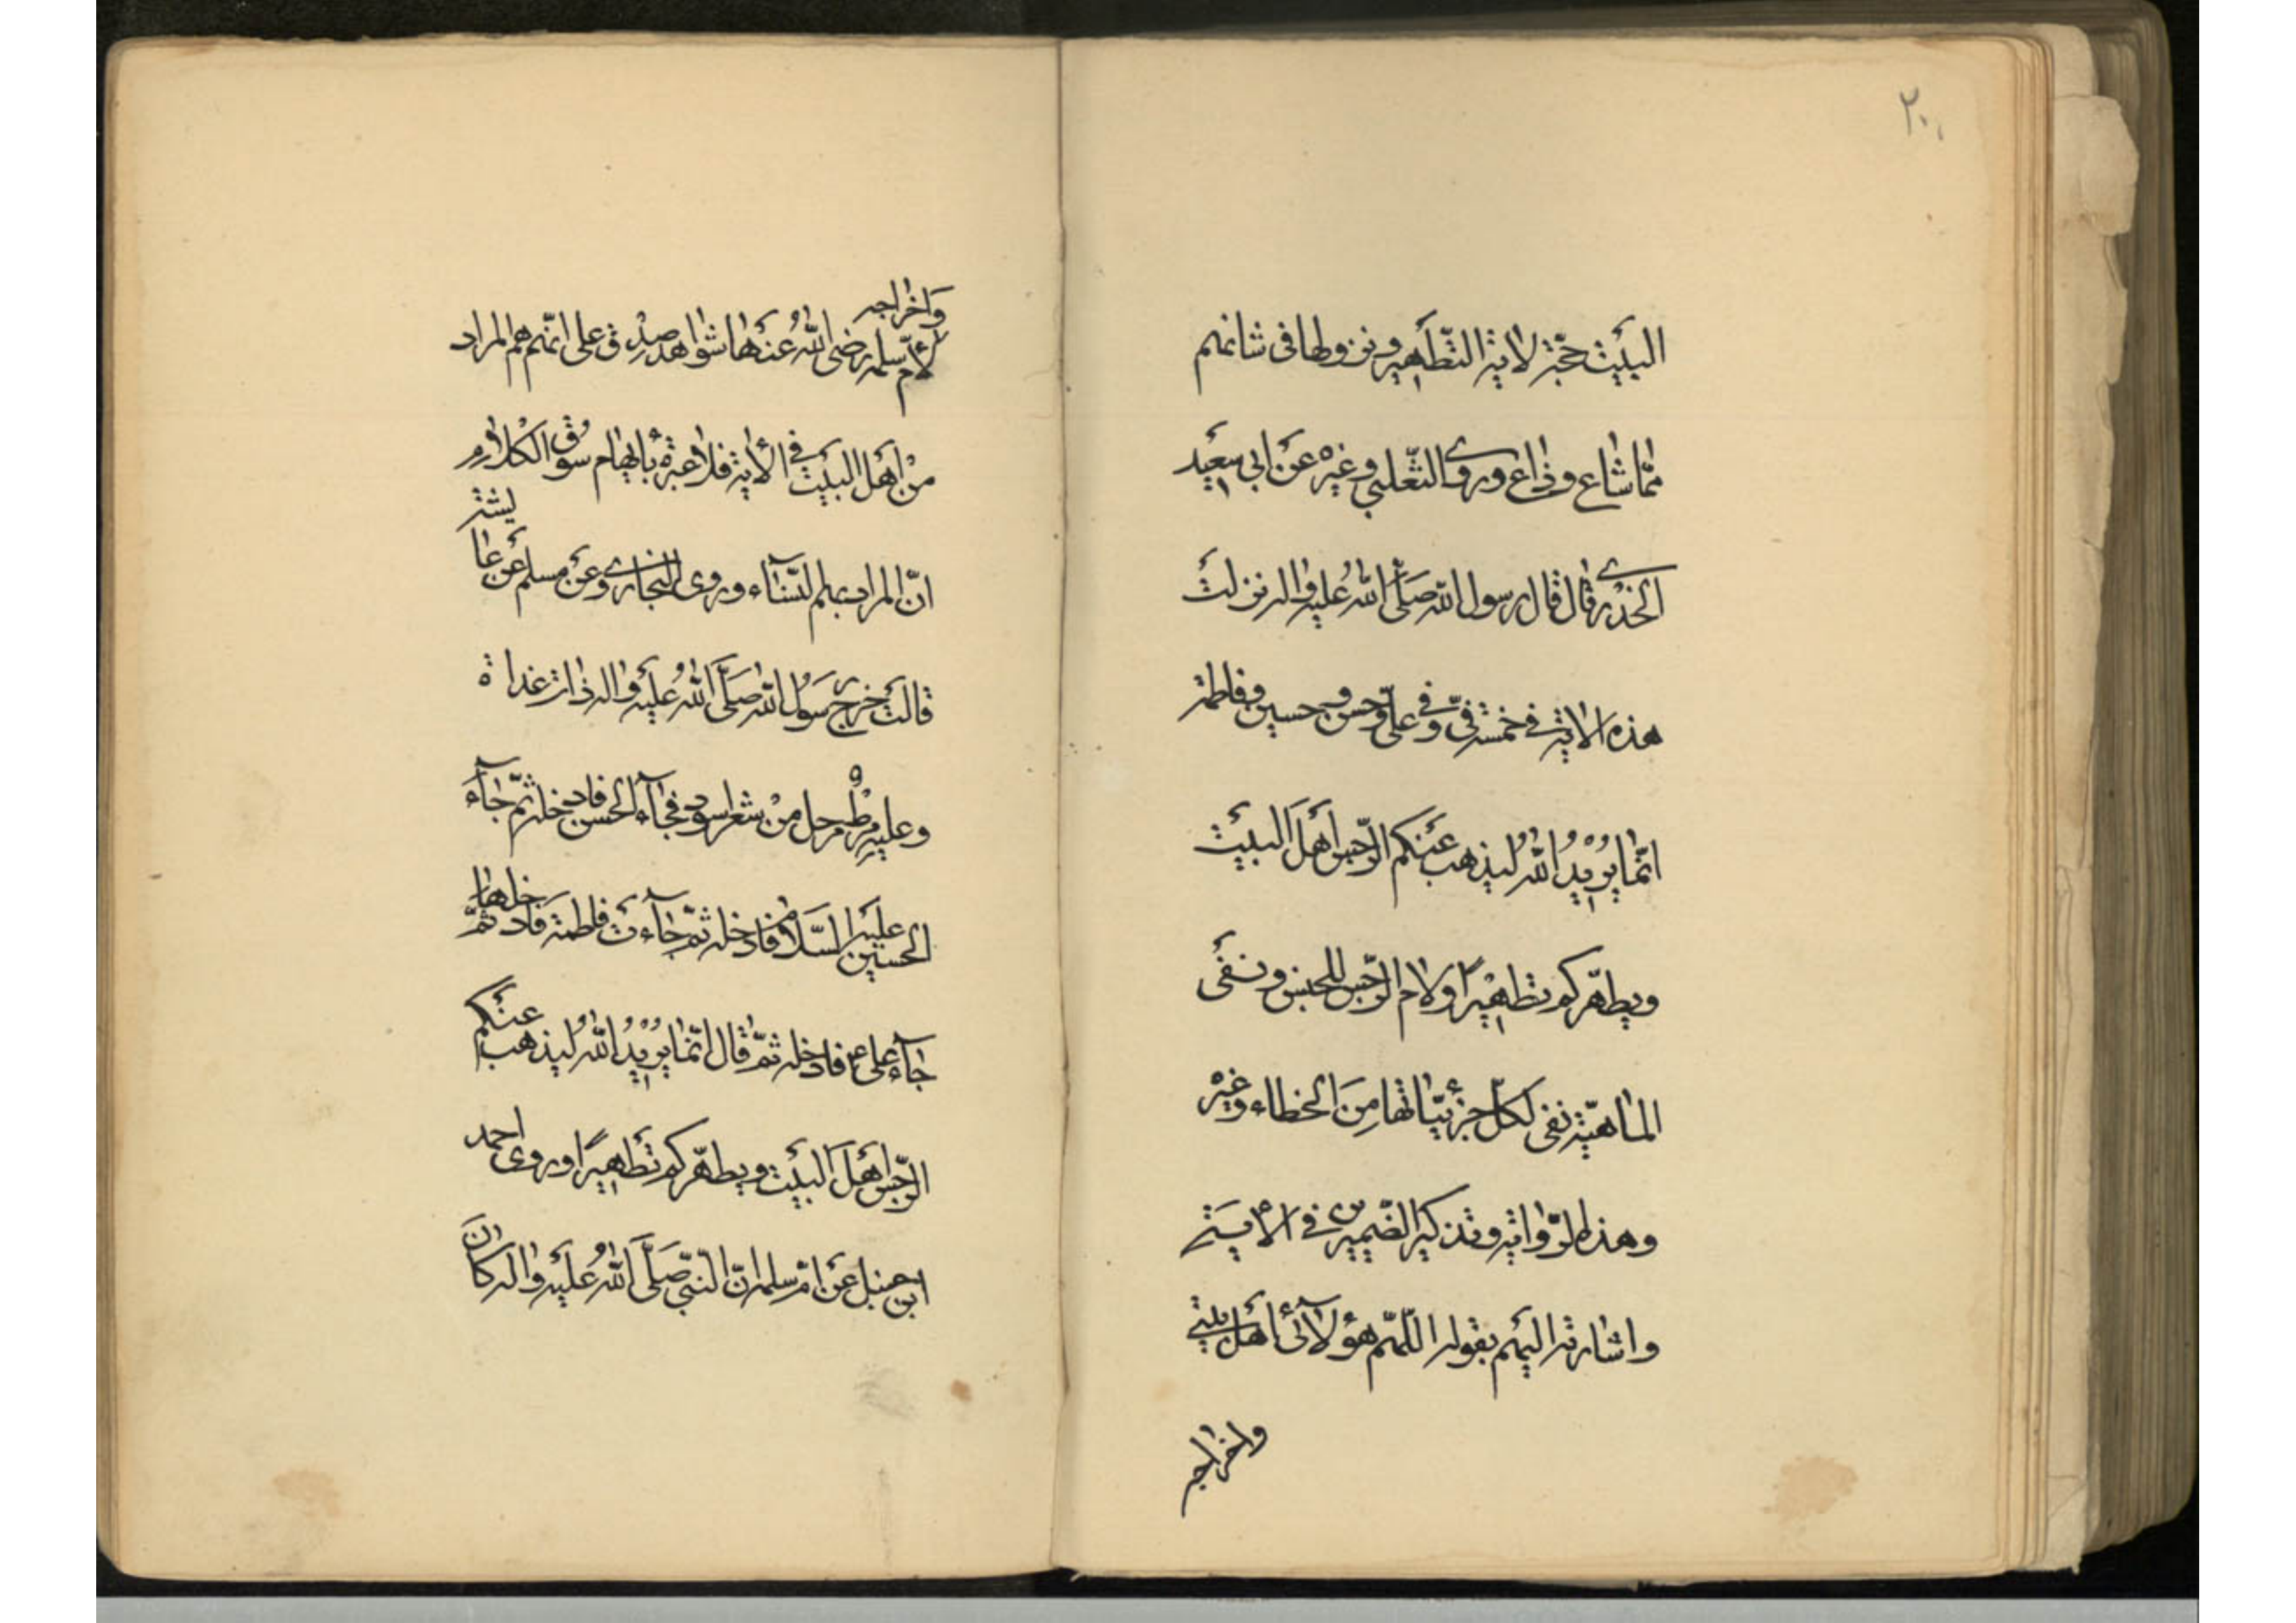 ٢٠١
البَيْت حجّة لاية التّطهير ونزولها في شانهم
ممّا شاع وذاع وروى الثّعلبي وغيره عَن ابي سعيد
الخدري قال قال رسول الله صَلّى اللهُ عليه واله نزلت
هذه الاية في خمسة فيّ وفي عليّ وحسن وحسين وفاطمة
انّما يُرِيْدُ اللهُ ليذهب عَنكم الرّجس اَهْلَ البَيْت
ويطهّركم تطهيْرًا ولام الرّجس للجنس ونفى
الماهيّة نفى لكلّ جزئيّاتها مِنَ الخطاء وغيره
وهذه الرّواية وتذكير الضّميرين في الأية
واشارته اليهم بقوله اللّهمّ هؤلآئ اَهْل بيتي
واخراجه
وَاخراجه
لأمّ سلمه رضى اللهُ عَنها شواهد صِدْق على انّهم هم المراد
مِنْ اَهْل البَيْت في الأية فلا عبرة بأيهام سَوْق الكلام
انّ المراد بهم النّسآء وروى البخاري وعَن مسلم عَن عايشة
قالت خرج رسَوُل الله صَلَّى اللهُ عليه واله ذات غداة
وعليه مِرْطٌ مرحل مِنْ شعر اسود فجآء الحسن فادخله ثمّ جآء
الحسين عليْه السّلام فادخله ثمّ جآءت فاطمة فادخلها ثمّ
جآء على ع فادخله ثمّ قال انّما يُرِيْدُ اللهُ ليذهب عَنْكم
الرّجس اَهْلَ البَيْت ويطهّركم تَطهيرًا وروى احمد
ابن حنبل عَن امّ سلمه انّ النّبيّ صَلَّى اللهُ عليه واله كانَ